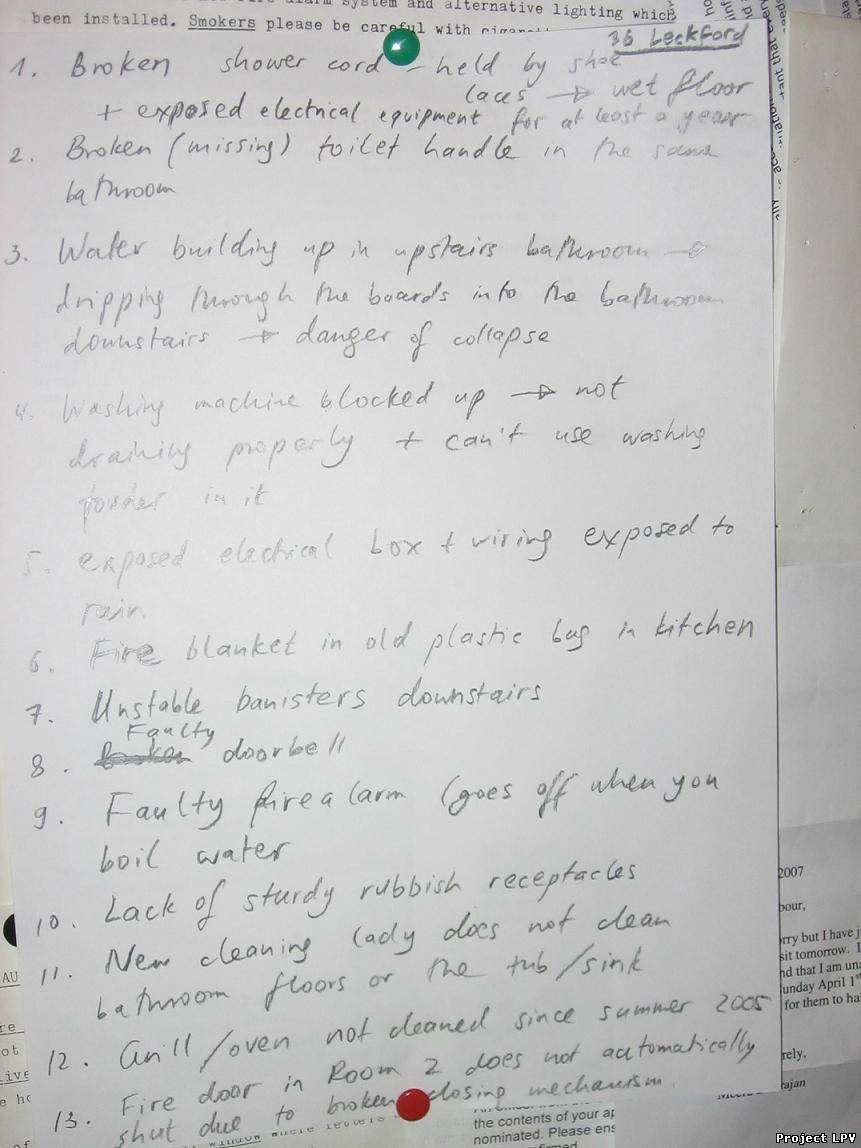 system and alternative lighting which
been installed. Smokers please be careful with
36 Leckford
1. Broken shower cord – held by shoe
laces → wet floor
+ exposed electrical equipment for at least a year
2. Broken (missing) toilet handle in the same
bathroom
3. Water building up in upstairs bathroom →
dripping through the boards into the bathroom
downstairs → danger of collapse
4. Washing machine blocked up → not
draining properly + can't use washing
powder in it
5. exposed electrical box + wiring exposed to
rain
6. Fire blanket in old plastic bag in kitchen
7. Unstable banisters downstairs
Faulty
8. Broken doorbell
9. Faulty fire alarm (goes off when you
boil water
10. Lack of sturdy rubbish receptacles
11. New cleaning lady does not clean
bathroom floors or the tub/sink
12. Grill/oven not cleaned since summer 2005
13. Fire door in Room 2 does not automatically
shut due to broken closing mechanism.
2007
bour,
rry but I have j
sit tomorrow. I
nd that I am una
unday April 1st
for them to ha
rely,
rajan
the contents of your ap
nominated. Please ens
Project LPV